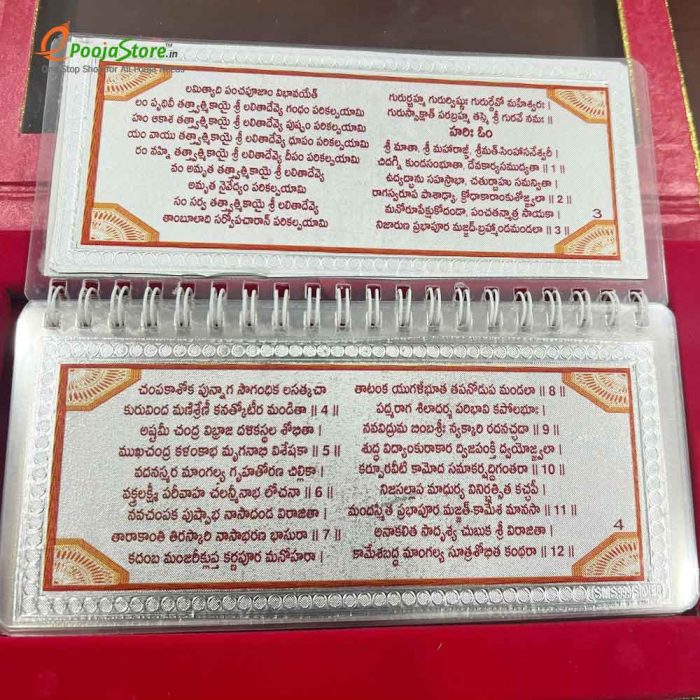 PoojaStore.in
One Stop Shop for All Pooja Needs
లమిత్యాది పంచపూజాం విభావయేత్
లం పృథివీ తత్త్వాత్మికాయై శ్రీ లలితాదేవ్యై గంధం పరికల్పయామి
హం ఆకాశ తత్త్వాత్మికాయై శ్రీ లలితాదేవ్యై పుష్పం పరికల్పయామి
యం వాయు తత్త్వాత్మికాయై శ్రీ లలితాదేవ్యై ధూపం పరికల్పయామి
రం వహ్ని తత్త్వాత్మికాయై శ్రీ లలితాదేవ్యై దీపం పరికల్పయామి
వం అమృత తత్త్వాత్మికాయై శ్రీ లలితాదేవ్యై
అమృత నైవేద్యం పరికల్పయామి
సం సర్వ తత్త్వాత్మికాయై శ్రీ లలితాదేవ్యై
తాంబూలాది సర్వోపచారాన్ పరికల్పయామి
గురుర్బ్రహ్మ గురుర్విష్ణుః గురుర్దేవో మహేశ్వరః|
గురుస్సాక్షాత్ పరబ్రహ్మ తస్మై శ్రీ గురవే నమః||
హరిః ఓం
శ్రీ మాతా, శ్రీ మహారాజ్ఞీ, శ్రీమత్-సింహాసనేశ్వరీ |
చిదగ్ని కుండసంభూతా, దేవకార్యసముద్యతా || 1 ||
ఉద్యద్భాను సహస్రాభా, చతుర్బాహు సమన్వితా |
రాగస్వరూప పాశాఢ్యా, క్రోధాకారాంకుశోజ్జ్వలా || 2 ||
మనోరూపేక్షుకోదండా, పంచతన్మాత్ర సాయకా |
నిజారుణ ప్రభాపూర మజ్జద్-బ్రహ్మాండమండలా || 3 ||
3
చంపకాశోక పున్నాగ సౌగంధిక లసత్కచా
కురువింద మణిశ్రేణీ కనత్కోటీర మండితా || 4 ||
అష్టమీ చంద్ర విభ్రాజ దళికస్థల శోభితా |
ముఖచంద్ర కళంకాభ మృగనాభి విశేషకా || 5 ||
వదనస్మర మాంగల్య గృహతోరణ చిల్లికా |
వక్త్రలక్ష్మీ పరీవాహ చలన్మీనాభ లోచనా || 6 ||
నవచంపక పుష్పాభ నాసాదండ విరాజితా |
తారాకాంతి తిరస్కారి నాసాభరణ భాసురా || 7 ||
కదంబ మంజరీక్లుప్త కర్ణపూర మనోహరా |
తాటంక యుగళీభూత తపనోడుప మండలా || 8 ||
పద్మరాగ శిలాదర్శ పరిభావి కపోలభూః |
నవవిద్రుమ బింబశ్రీః న్యక్కారి రదనచ్ఛదా || 9 ||
శుద్ధ విద్యాంకురాకార ద్విజపంక్తి ద్వయోజ్జ్వలా |
కర్పూరవీటి కామోద సమాకర్షద్దిగంతరా || 10 ||
నిజసల్లాప మాధుర్య వినిర్భర్త్సిత కచ్ఛపీ |
మందస్మిత ప్రభాపూర మజ్జత్-కామేశ మానసా || 11 ||
అనాకలిత సాదృశ్య చుబుక శ్రీ విరాజితా |
కామేశబద్ధ మాంగల్య సూత్రశోభిత కంధరా || 12 ||
4